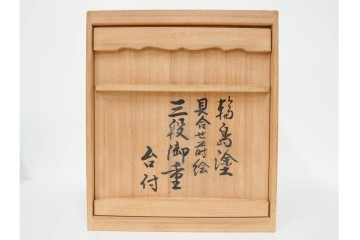 輪島塗
貝合せ蒔絵
三段御重
台付